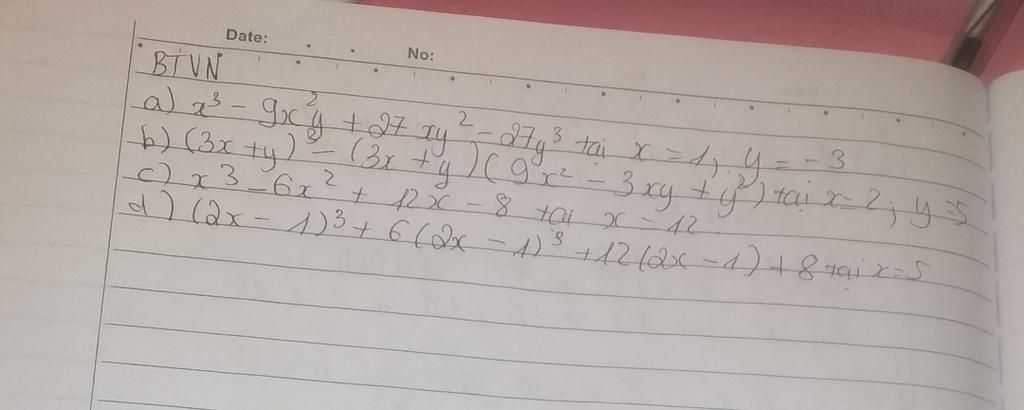 Date:
No:
BTVN
a) x³ - 9x²y + 27xy² - 27y³ tại x = 1, y = -3
b) (3x + y)³ - (3x + y)(9x² - 3xy + y²) tại x = 2, y = 5
c) x³ - 6x² + 12x - 8 tại x = 12
d) (2x - 1)³ + 6(2x - 1)³ + 12(2x - 1) + 8 tại x = 5